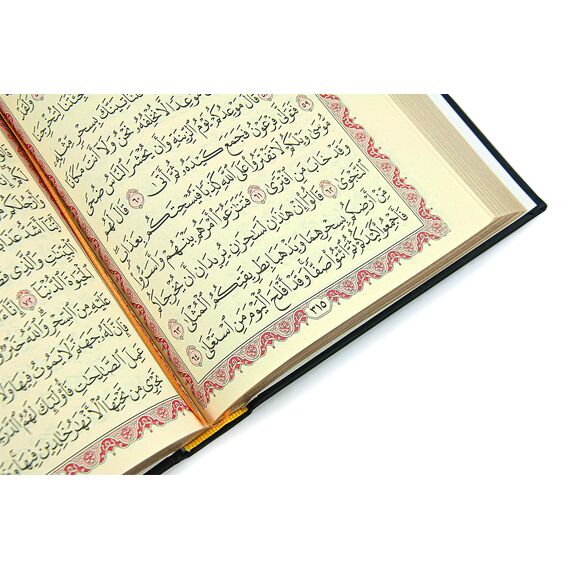 بِسِحْرٍ مِثْلِهِ
مَوْعِدًا لَا نُخْلِفُهُ نَحْنُ وَلَا أَنْتَ مَكَانًا
قَالَ مَوْعِدُكُمْ يَوْمُ الزِّينَةِ وَأَنْ يُحْشَرَ النَّاسُ ضُحًى
٥٩ فَتَوَلَّى فِرْعَوْنُ فَجَمَعَ كَيْدَهُ ثُمَّ أَتَى ٦٠ قَالَ لَهُمْ
مُوسَى وَيْلَكُمْ لَا تَفْتَرُوا عَلَى اللّٰهِ كَذِبًا فَيُسْحِتَكُمْ بِعَذَابٍ
وَقَدْ خَابَ مَنِ افْتَرَى ٦١ فَتَنَازَعُوا أَمْرَهُمْ بَيْنَهُمْ وَأَسَرُّوا
النَّجْوَى ٦٢ قَالُوا إِنْ هٰذَانِ لَسَاحِرَانِ يُرِيدَانِ أَنْ يُخْرِجَاكُمْ
مِنْ أَرْضِكُمْ بِسِحْرِهِمَا وَيَذْهَبَا بِطَرِيقَتِكُمُ الْمُثْلَى ٦٣
فَأَجْمِعُوا كَيْدَكُمْ ثُمَّ ائْتُوا صَفًّا وَقَدْ أَفْلَحَ الْيَوْمَ مَنِ اسْتَعْلَى ٦٤
٣١٥
الدُّنْيَا ٧٢ إِنَّا
عَلَيْهِ مِنَ السِّحْرِ وَاللّٰهُ خَيْرٌ
فَإِنَّ لَهُ جَهَنَّمَ لَا يَمُوتُ فِيهَا وَلَا
عَمِلَ الصَّالِحَاتِ فَأُولٰئِكَ لَهُمُ
تَجْرِي مِنْ تَحْتِهَا الْأَنْهَارُ خَالِدِينَ فِيهَا